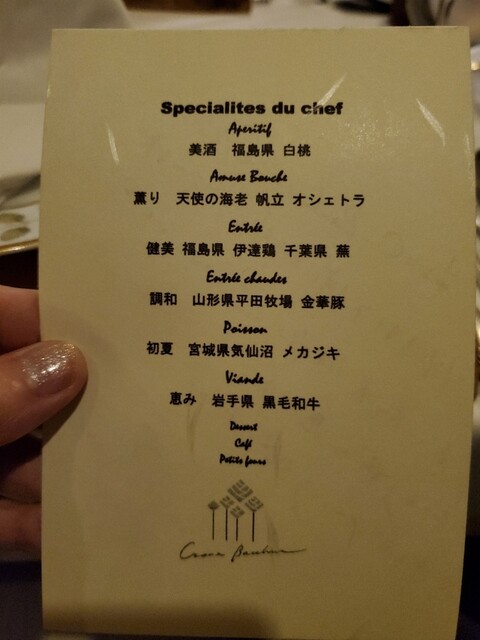 Specialites du chef
Aperitif
美酒 福島県 白桃
Amuse Bouche
薫り 天使の海老 帆立 オシェトラ
Entrée
健美 福島県 伊達鶏 千葉県 蕪
Entrée chaudes
調和 山形県平田牧場 金華豚
Poisson
初夏 宮城県気仙沼 メカジキ
Viande
恵み 岩手県 黒毛和牛
Dessert
Café
Petits fours